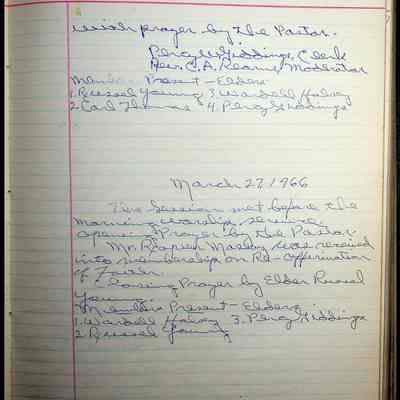 with prayer by the Pastor.
Percy W Giddings, Clerk
Rev. C. A. Moderator
Present - Elders
1. Russel Young 3. Wardell
2. Carl Thomas 4. Percy Giddings
March 27, 1966
The Session met before the
morning worship service.
opening Prayer by the Pastor
Mr. was received
into membership on Re-affirmation
of Faith.
Closing Prayer by Elder Russel
Young.
Members Present - Elders
1. Wardell 3. Percy Giddings
2 Russel Young